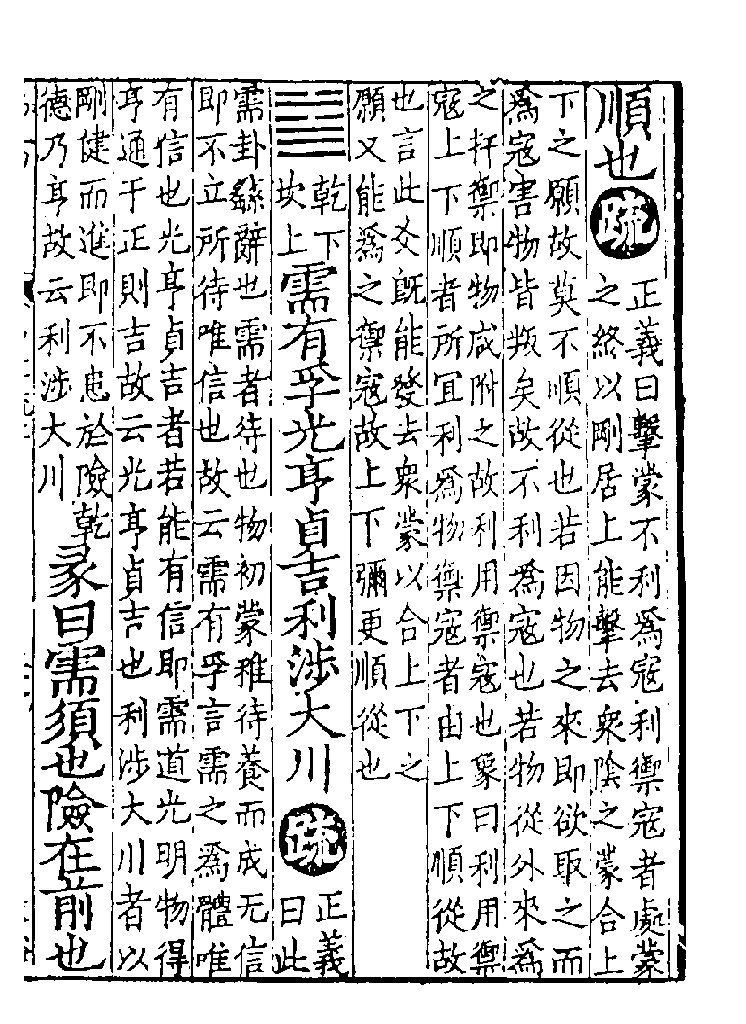 順也疏正義曰擊蒙不利爲寇利禦寇者處蒙
之終以剛居上能擊去衆陰之蒙合上
下之願故莫不順從也若因物之來即欲取之而
爲寇害物皆叛矣故不利爲寇也若物從外來爲
之扞禦即物咸附之故利用禦寇也象曰利用禦
寇上下順者所宜利爲物禦寇者由上下順從故
也言此爻旣能發去衆蒙以合上下之
願又能爲之禦寇故上下彌更順從也
䷄乾下坎上需有孚光亨貞吉利涉大川疏正義曰此
需卦繇辭也需者待也物初蒙稚待養而成无信
即不立所待唯信也故云需有孚言需之爲體唯
有信也光亨貞吉者若能有信即需道光明物得
亨通于正則吉故云光亨貞吉也利涉大川者以
剛健而進即不患於險乾
德乃亨故云利涉大川
彖曰需須也險在前也